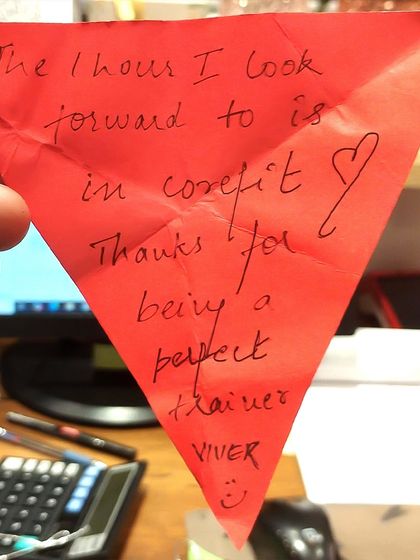 The 1 hour I look
forward to is
in corefit
Thanks for
being a
perfect
trainer
VIVER